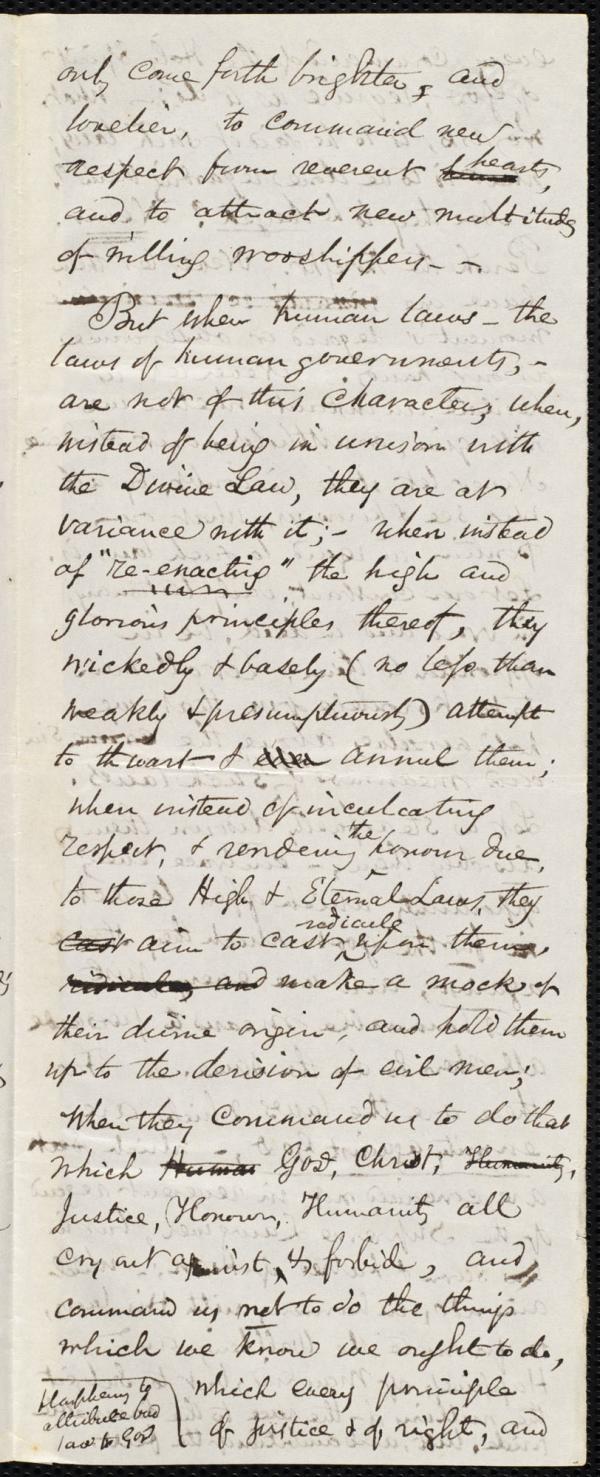 only come forth brighter, and
lovelier, to command new
respect from reverent hearts,
and to attract new multitudes
of willing worshippers - -
But when human laws - the
laws of human governments, -
are not of this character, when,
instead of being in unison with
the Divine Law, they are at
variance with it; - when instead
of "re-enacting" the high and
glorious principles thereof, they
wickedly & basely (no less than
weakly & presumptuously) attempt
to thwart & even annul them;
when instead of inculcating
respect, & rendering the honour due,
to those High & Eternal Laws, they
cast aim to cast ridicule upon them,
ridicule, and make a mock of
their divine origin, and hold them
up to the derision of evil men;
When they command us to do that
which Human God, Christ, Humanity,
Justice, Honour, Humanity all
cry out against, & forbid, and
command us not to do the things
which we know we ought to do,
which every principle
of justice & of right, and
Blasphemy to
attribute bad
law to God